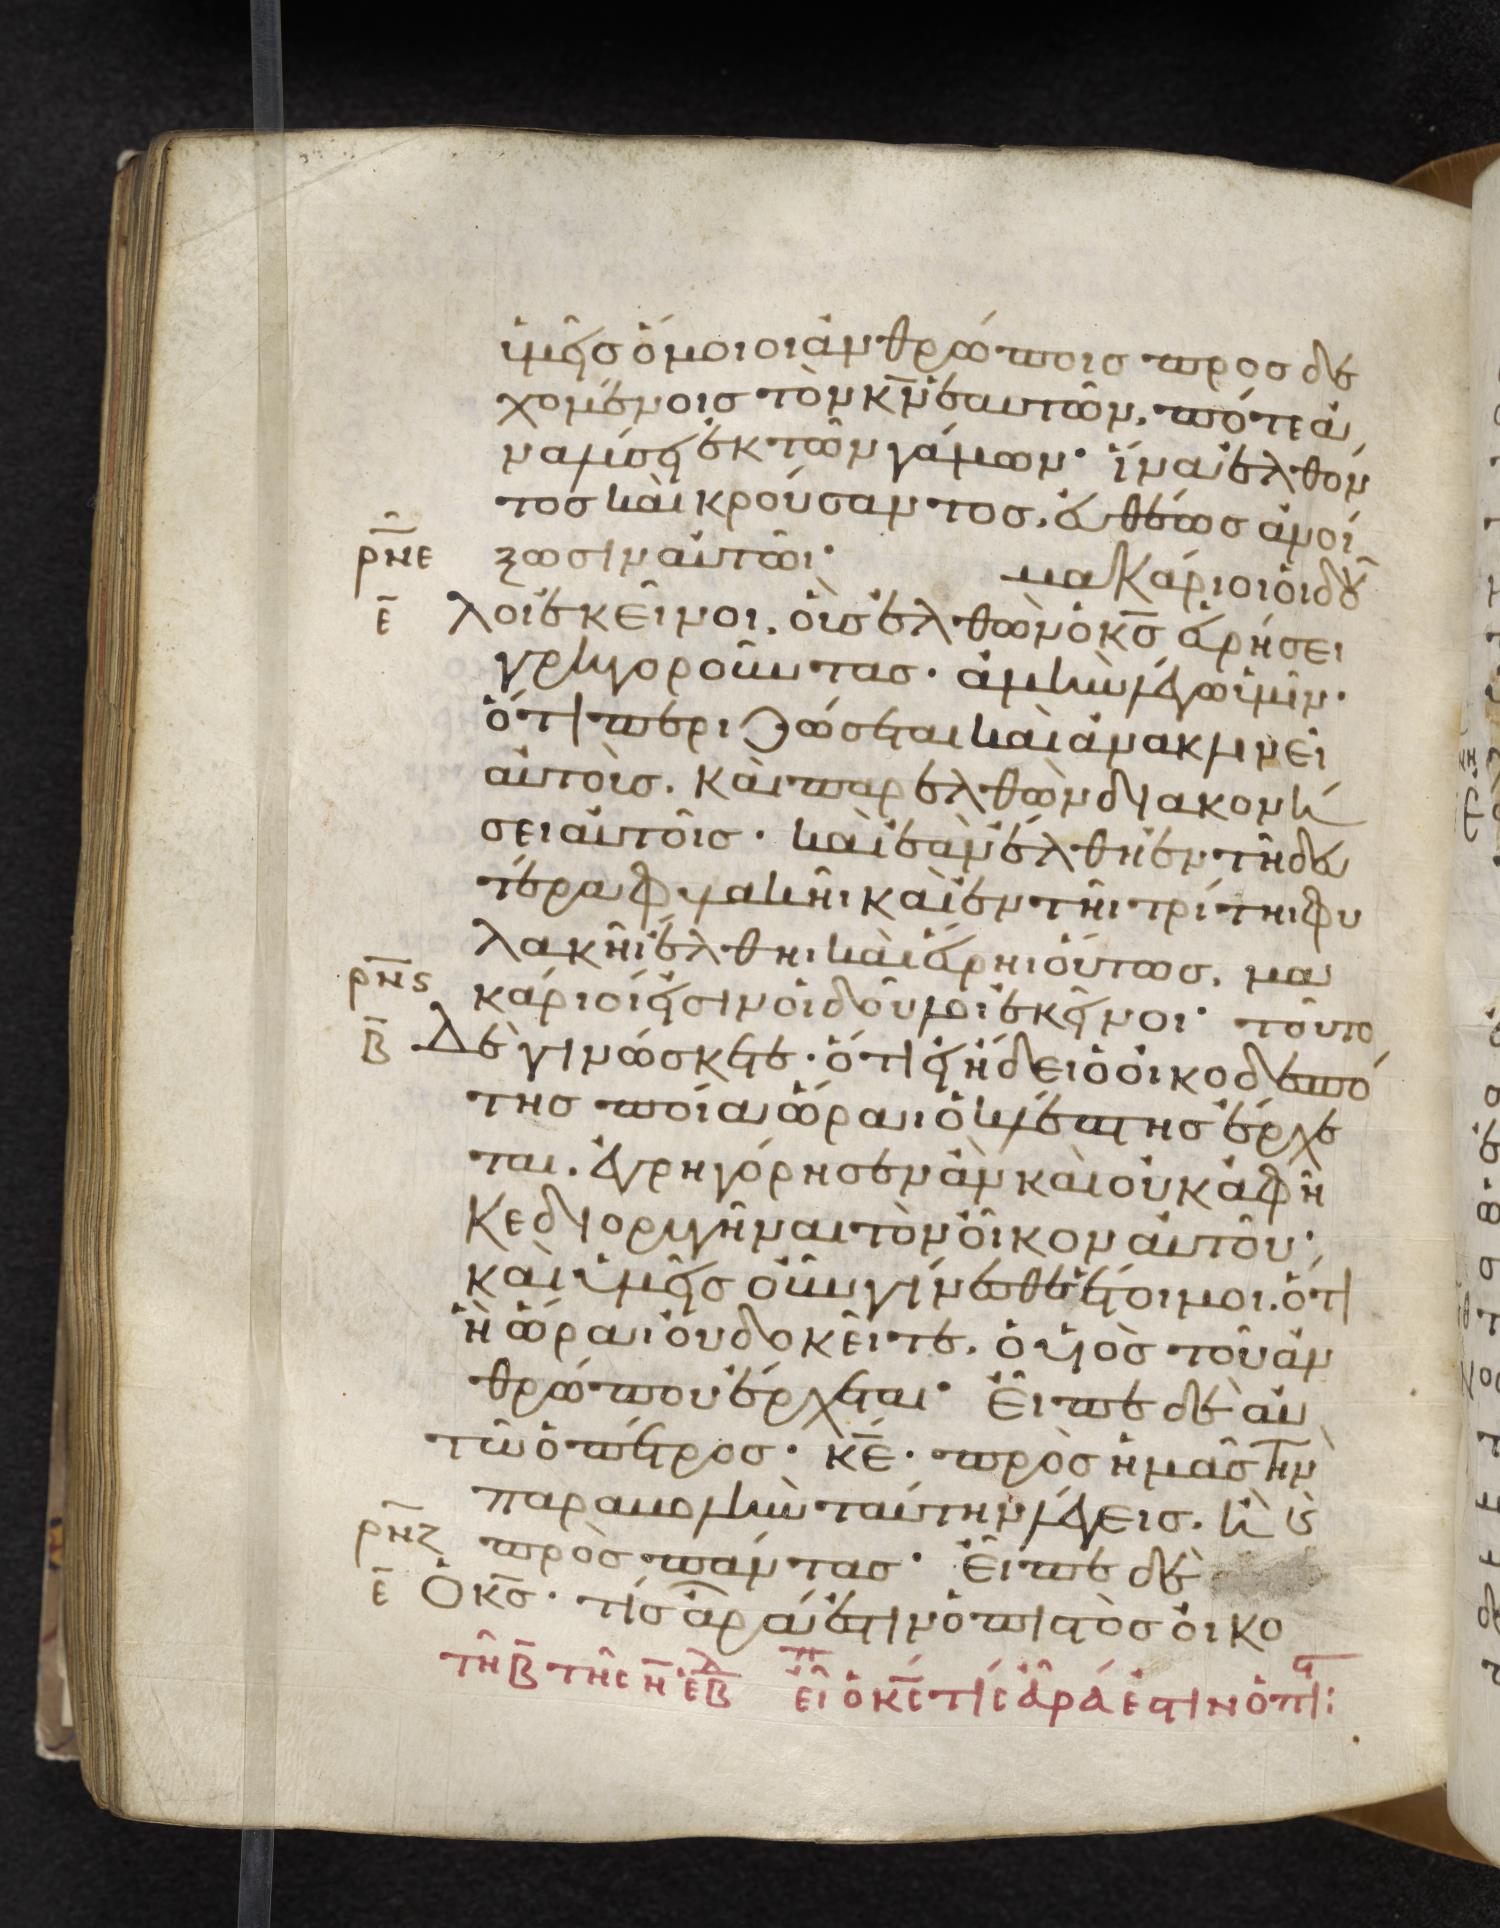 ὑμεῖς ὅμοιοι ἀνθρώποις προσδε
χομένοις τὸν κ̅ν̅ ἑαυτῶν. πότε ἀ
ναλύσει ἐκ τῶν γάμων· ἵνα ἐλθόν
τος καὶ κρούσαντος. εὐθέως ἀνοί
ρ̅ν̅ε ξωσιν αὐτῶι· μακάριοι οἱ δοῦ
ε̅ λοι ἐκεῖνοι. οὓς ἐλθὼν ὁ κ̅ς̅ εὑρήσει
γρηγοροῦντας· ἀμὴν λέγω ὑμῖν·
ὅτι περιζώσεται καὶ ἀνακλινεῖ
αὐτοὺς. καὶ παρελθὼν διακονή
σει αὐτοῖς· καὶ ἐὰν ἔλθη ἐν τῆ δευ
τέρα φυλακῆι καὶ ἐν τῆι τρίτηι φυ
λακῆι ἔλθηι καὶ εὕρηι οὕτως. μα
ρ̅ν̅ς κάριοί εἰσιν οἱ δοῦλοι ἐκεῖνοι· τοῦτο
β̅ Δὲ γινώσκετε· ὅτι εἰ ἤδει ὁ οἰκοδεσπό
της ποία ὥρα ὁ κλέπτης ἔρχε
ται. ἐγρηγόρησεν ἂν καὶ οὐκ ἀφῆ
κε διορυγῆναι τὸν οἶκον αὐτοῦ·
καὶ ὑμεῖς οὖν γίνεσθε ἕτοιμοι. ὅτι
ἧ ὥρα οὐ δοκεῖτε. ὁ υἱὸς τοῦ ἀν
θρώπου ἔρχεται· Εἶπε δὲ αὐ
τῶ ὁ πέτρος· κ̅ε̅· πρὸς ἡμᾶς τὴν
παραβολὴν ταύτην λέγεις. ἢ καὶ
ρ̅ν̅ζ πρὸς πάντας· Εἶπε δὲ
ε̅ Ὁ κ̅ς̅· τίς ἄρα ἐστὶν ὁ πιστὸς οἰκο
τῆ β̅ τῆς η̅ ἑβδ εἶπ ὁ κ̅ς̅ τίς ἄρα ἐστιν ὁ πιστ: